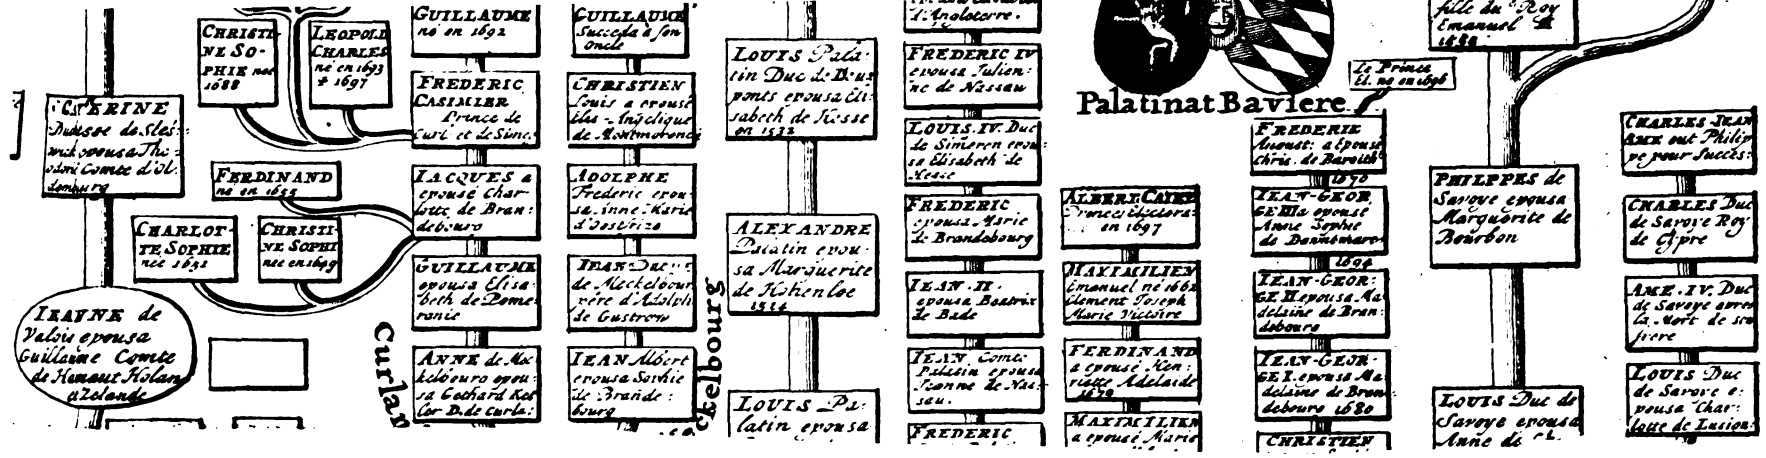 CHRISTI
NE SO-
PHIE nee
1688
LEOPOLD
CHARLES
né en 1693
† 1697
CATERINE
de Sles
epousa
Comte d'Ol
denburg
FERDINAND
né en 1655
CHARLOT
TE SOPHIE
nee 1651
CHRISTI
NE SOPHI
nee en 1649
IEANNE de
Valois epousa
Guillaume Comte
de Henaut Holan
Zelande
GUILLAUME
né en 1692
FREDERIC
CASIMIER
Prince de
Curl. et de Sime
IACQUES a
epousé Char
lotte de Bran:
debourg
GUILLAUME
epousa Elisa
beth de Pome
ranie
ANNE de Mec
kelbourg epou:
sa Gothard Ket
ler D. de Curla:
Curlan
GUILLAUME
Succeda à son
Oncle
CHRISTIEN
Louis a epousé
Angelique
de Montmorenci
ADOLPHE
Frederic epou
sa Anne Marie
IEAN Duc
de Meckelbour
rere d'Adolph
de Gustrow
IEAN Albert
epousa Sophie
de Brande:
bourg
ckelbourg
LOUIS Pala:
tin Duc de Deux
ponts epousa Eli
sabeth de Hesse
en 1532
ALEXANDRE
Palatin epou:
sa Marguerite
de Hohenloe
1514
LOUIS Pa:
latin epousa
d'Angleterre.
FREDERIC IV
epousa Julien:
ne de Nassau
LOUIS. IV. Duc
de Simeren epou:
sa Elisabeth de
Hesse
FREDERIC
epousa Marie
de Brandebourg
IEAN. II.
epousa Beatrix
de Bade
IEAN Comte
Palatin epousa
Jeanne de Nas:
sau.
FREDERIC
Palatinat Baviere
ALBERT CAIET
Prince Electora:
en 1697
MAXIMILIEN
Emanuel né 1662
Clement Joseph
Marie Victoire
FERDINAND
a epousé Hen:
riette Adelaide
1679
MAXIMILIEN
a epousé Marie
Le Prince
El. né en 1696
FREDERIE
August: a Epousé
Chris. de Bareith
1670
IEAN-GEOR
GE III a epousé
Anne Sophie
de Dannemarc
1694
IEAN-GEOR:
GE II epousa Ma
delaine de Bran:
debourg
IEAN-GEOR:
GE I. epousa Ma
delaine de Bran
debourg 1680
CHRISTIEN
fille du Roy
Emanuel II
1688
PHILPPES de
Savoye epousa
Marguerite de
Bourbon
LOUIS Duc de
Savoye epousa
Anne de
CHARLES-IEAN
AME eut Philip
pe pour Succés:
CHARLES Duc
de Savoye Roy
de Cypre
AME. IV. Duc
de Savoye apres
la Mort de son
frere
LOUIS Duc
de Savoye e:
pousa Char:
lotte de Lusign: